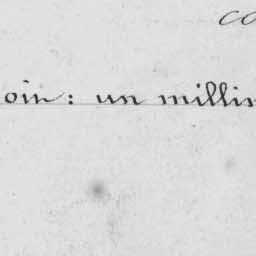 co
oin: un millin